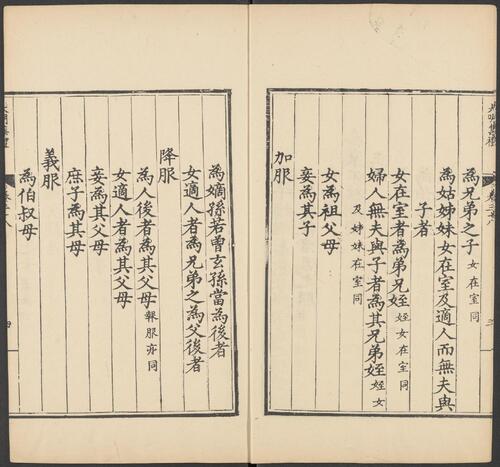 為兄弟之子 女在室同
為姑姊妹女在室及適人而無夫與
子者
女在室者為兄弟姪 姪女在室同
婦人無夫與子者為其兄弟姪 姪女
及姊妹在室同
女為祖父母
妾為其子
加服
為嫡孫若曾玄孫當為後者
女適人者為兄弟之為父後者
降服
為人後者為其父母 報服亦同
女適人者為其父母
妾為其父母
庶子為其母
義服
為伯叔母
四